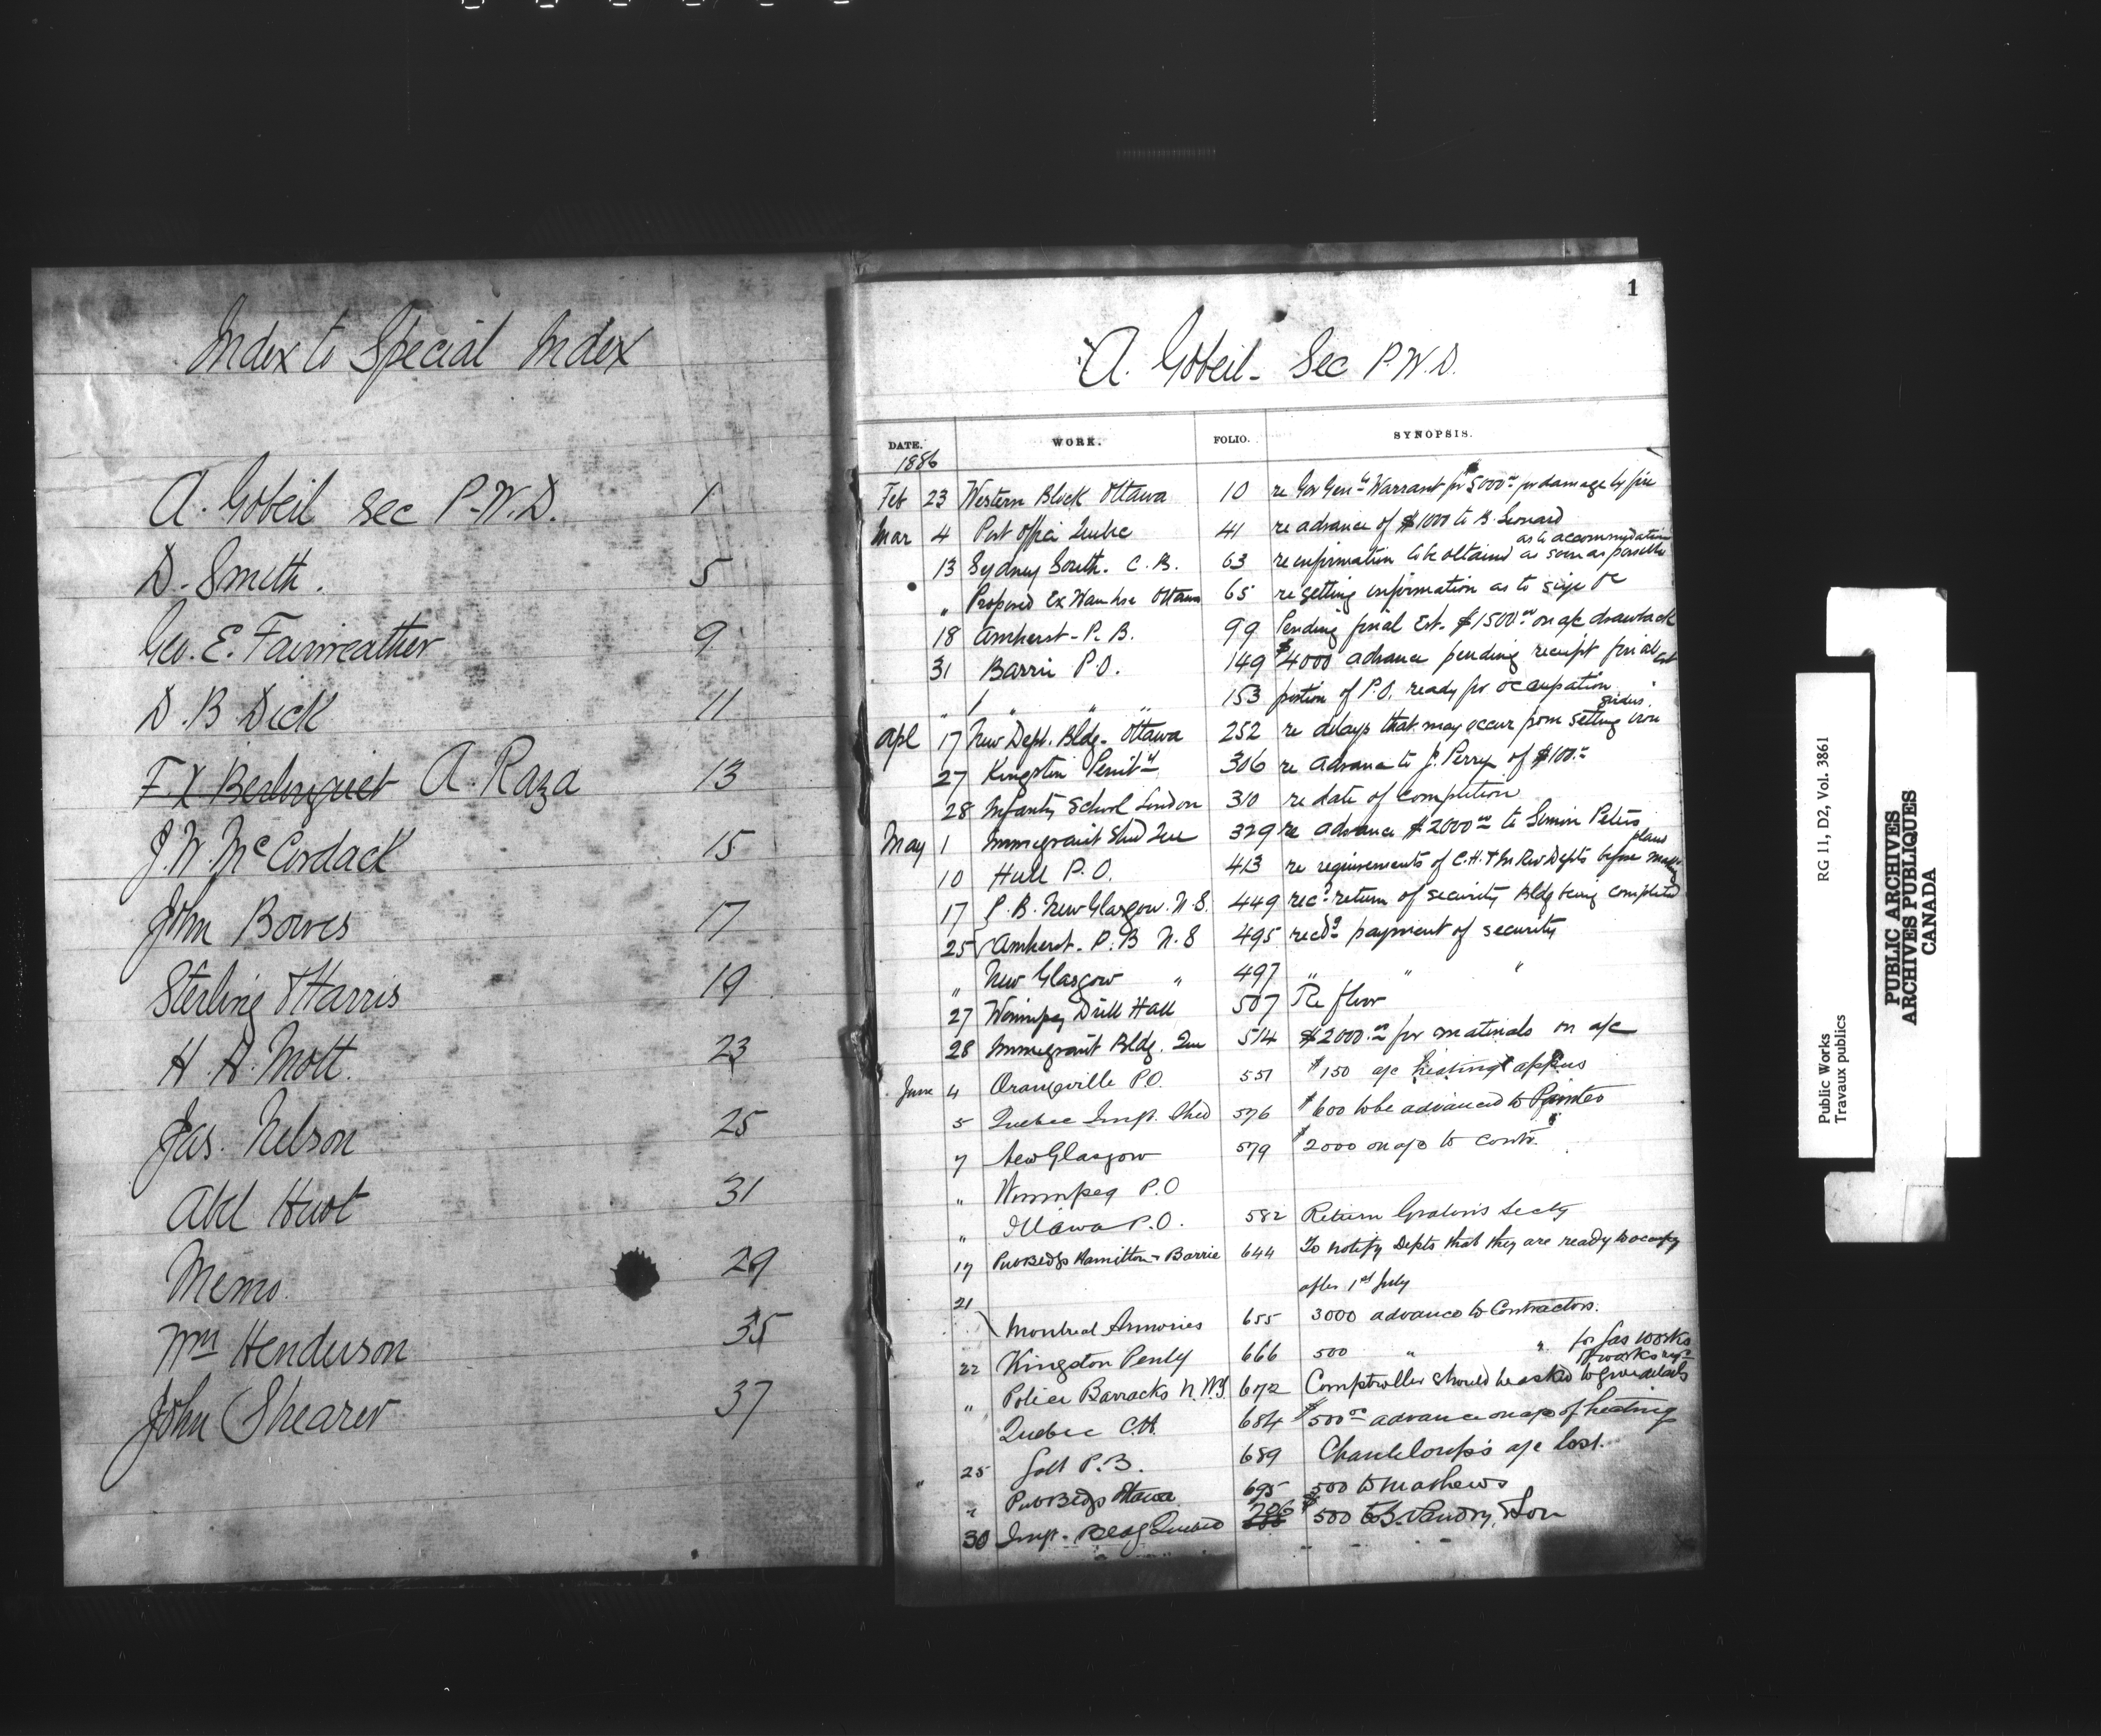 Index to Special Index
A. Gobeil Sec P.W.D. 1
D. Smith. 5
Geo. E. Fairweather 9
D. B Dick 11
F. X Berlinguet A. Raza 13
J. W. McCordack 15
John Bowes 17
Sterling & Harris 19
H. A. Mott. 23
Jas. Nelson 25
Abel Huot 31
Memo. 29
Wm Henderson 35
John Shearer 37
1
A. Gobeil - Sec P.W.D.
DATE. WORK. FOLIO. SYNOPSIS.
1886
Feb 23 Western Block Ottawa 10 re Gov Genls Warrant for $5000 for damage by fire
Mar 4 Post Office Quebec 41 re advance of $1000 to B. Leonard
as to accommodation
13 Sydney South. C. B. 63 re information to be obtained as soon as possible
" Proposed Ex Warehse Ottawa 65 re getting information as to size &c
18 Amherst - P. B. 99 Pending final Est. $1500.00 on a/c drawback
31 Barrie P.O. 149 $4000 advance pending receipt final est
" " " " 153 portion of P.O. ready for occupation
girders.
Apl 17 New Dept. Bldg - Ottawa 252 re delays that may occur from setting iron
27 Kingston Penity 306 re advance to J. Perry of $100.-
28 Infantry School London 310 re date of completion
May 1 Immigrant Shed Que 329 re advance $2000.00 to Simon Peters
plans
10 Hull P.O. 413 re requirements of C.H. & In Rev Depts before making
17 P. B. New Glasgow. N.S. 449 recd return of security Bldg being completed
25 Amherst - P. B N.S 495 recdg payment of security
" New Glasgow " 497 " " "
27 Winnipeg Drill Hall 507 Re floor
28 Immigrant Bldg. Que 514 $2000.00 for materials on a/c
June 4 Orangeville P.O. 551 $150 a/c heating appus
5 Quebec Imgt. Shed 576 $600 to be advanced to Painter
7 New Glasgow 579 $2000 on a/c to contr.
" Winnipeg P.O
" Ottawa P.O. 582 Return Gratons Secty
17 Pub Bldgs Hamilton & Barrie 644 To notify Depts that they are ready to occupy
after 1st July
21
Montreal Armories 655 3000 advance to Contractors.
22 Kingston Penty 666 500 " " for gas works
" Police Barracks N.W.T 672 Comptroller should be asked to give details
of works reqd
Quebec C.H. 684 $500.00 advance on a/c of heating
" 25 Galt P.B. 689 Chanteloup's a/c lost.
" Pub Bldgs Ottawa 695 500 to Mathews
30 Imgt. Bldg Quebec 706 $500 to B. Landry & Son
Public Works RG 11, D2, Vol. 3861
Travaux publics
PUBLIC ARCHIVES
ARCHIVES PUBLIQUES
CANADA